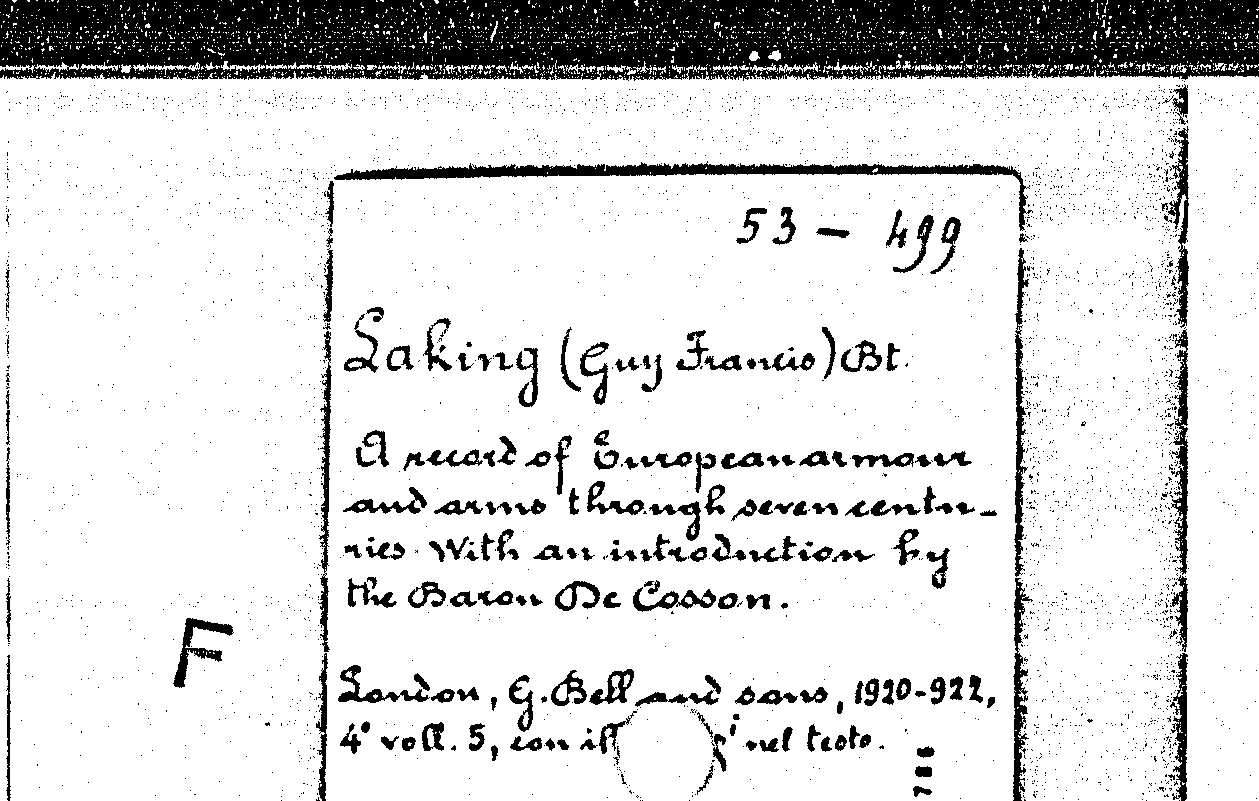 53 - 499
Laking (Guy Francis) Bt.
A record of European armour
and arms through seven centu-
ries. With an introduction by
the Baron De Cosson.
F
London, G. Bell and sons, 1920-922,
4° voll. 5, con ill nel testo.
786